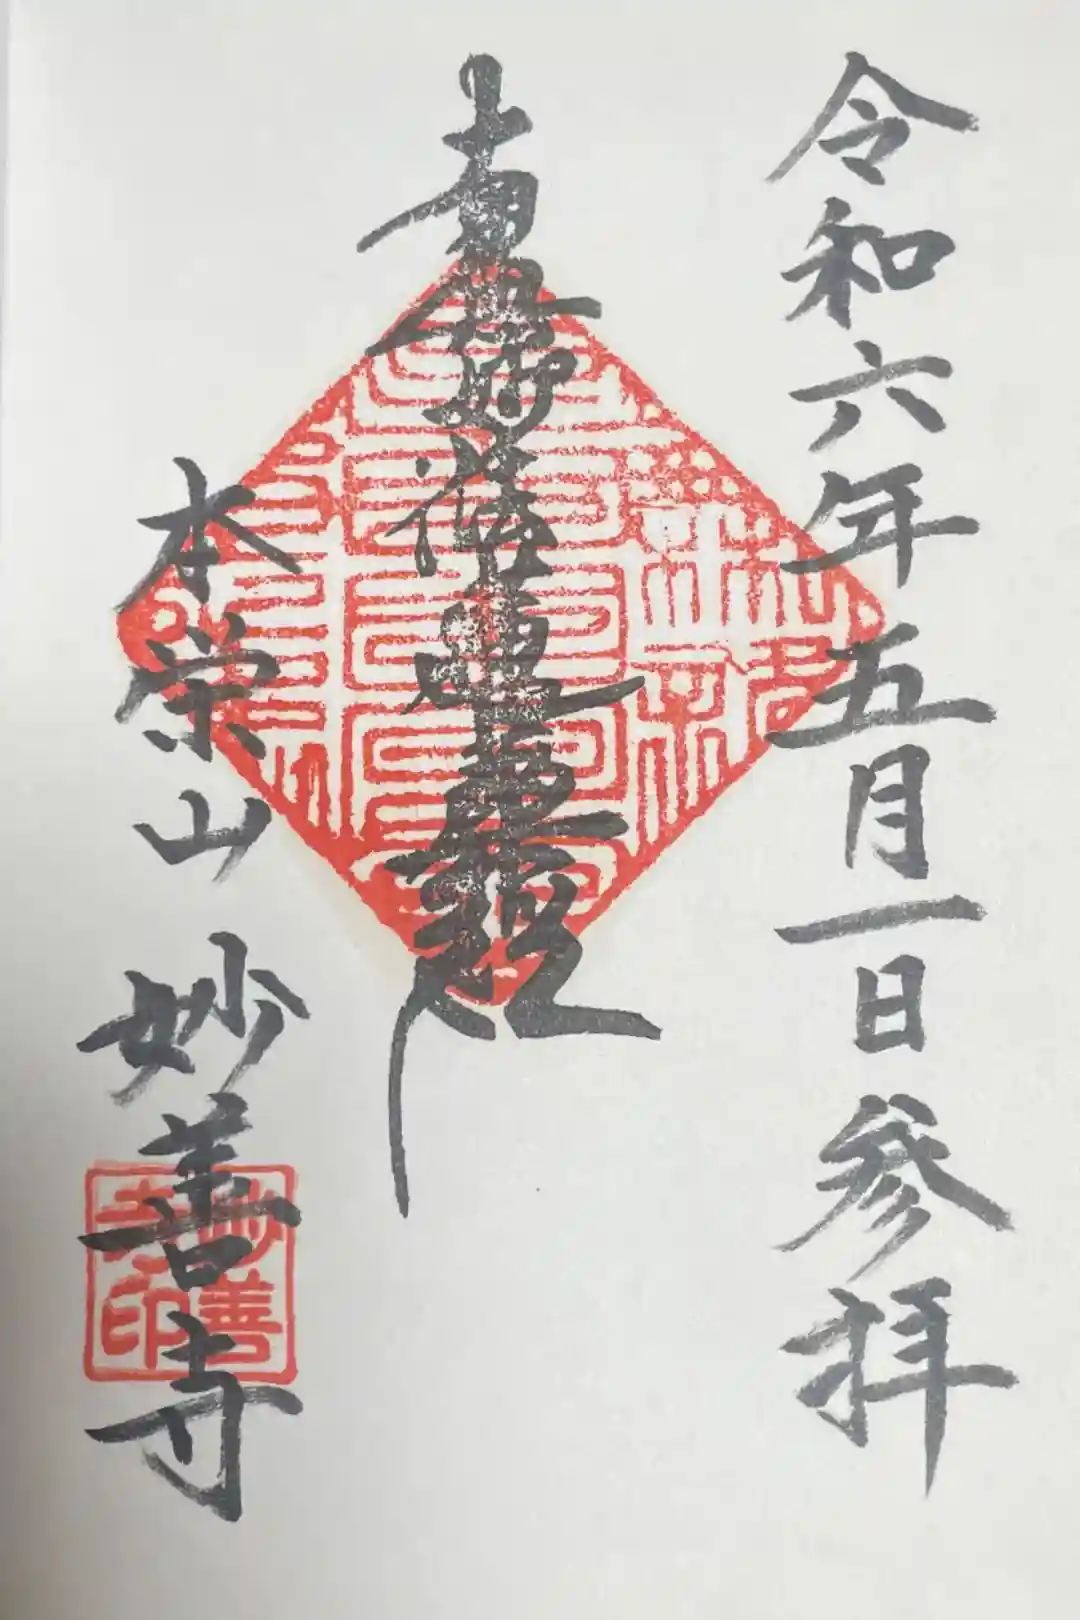 令和六年五月一日參拝
南無妙法蓮華経
本栄山妙善寺
妙善
寺印